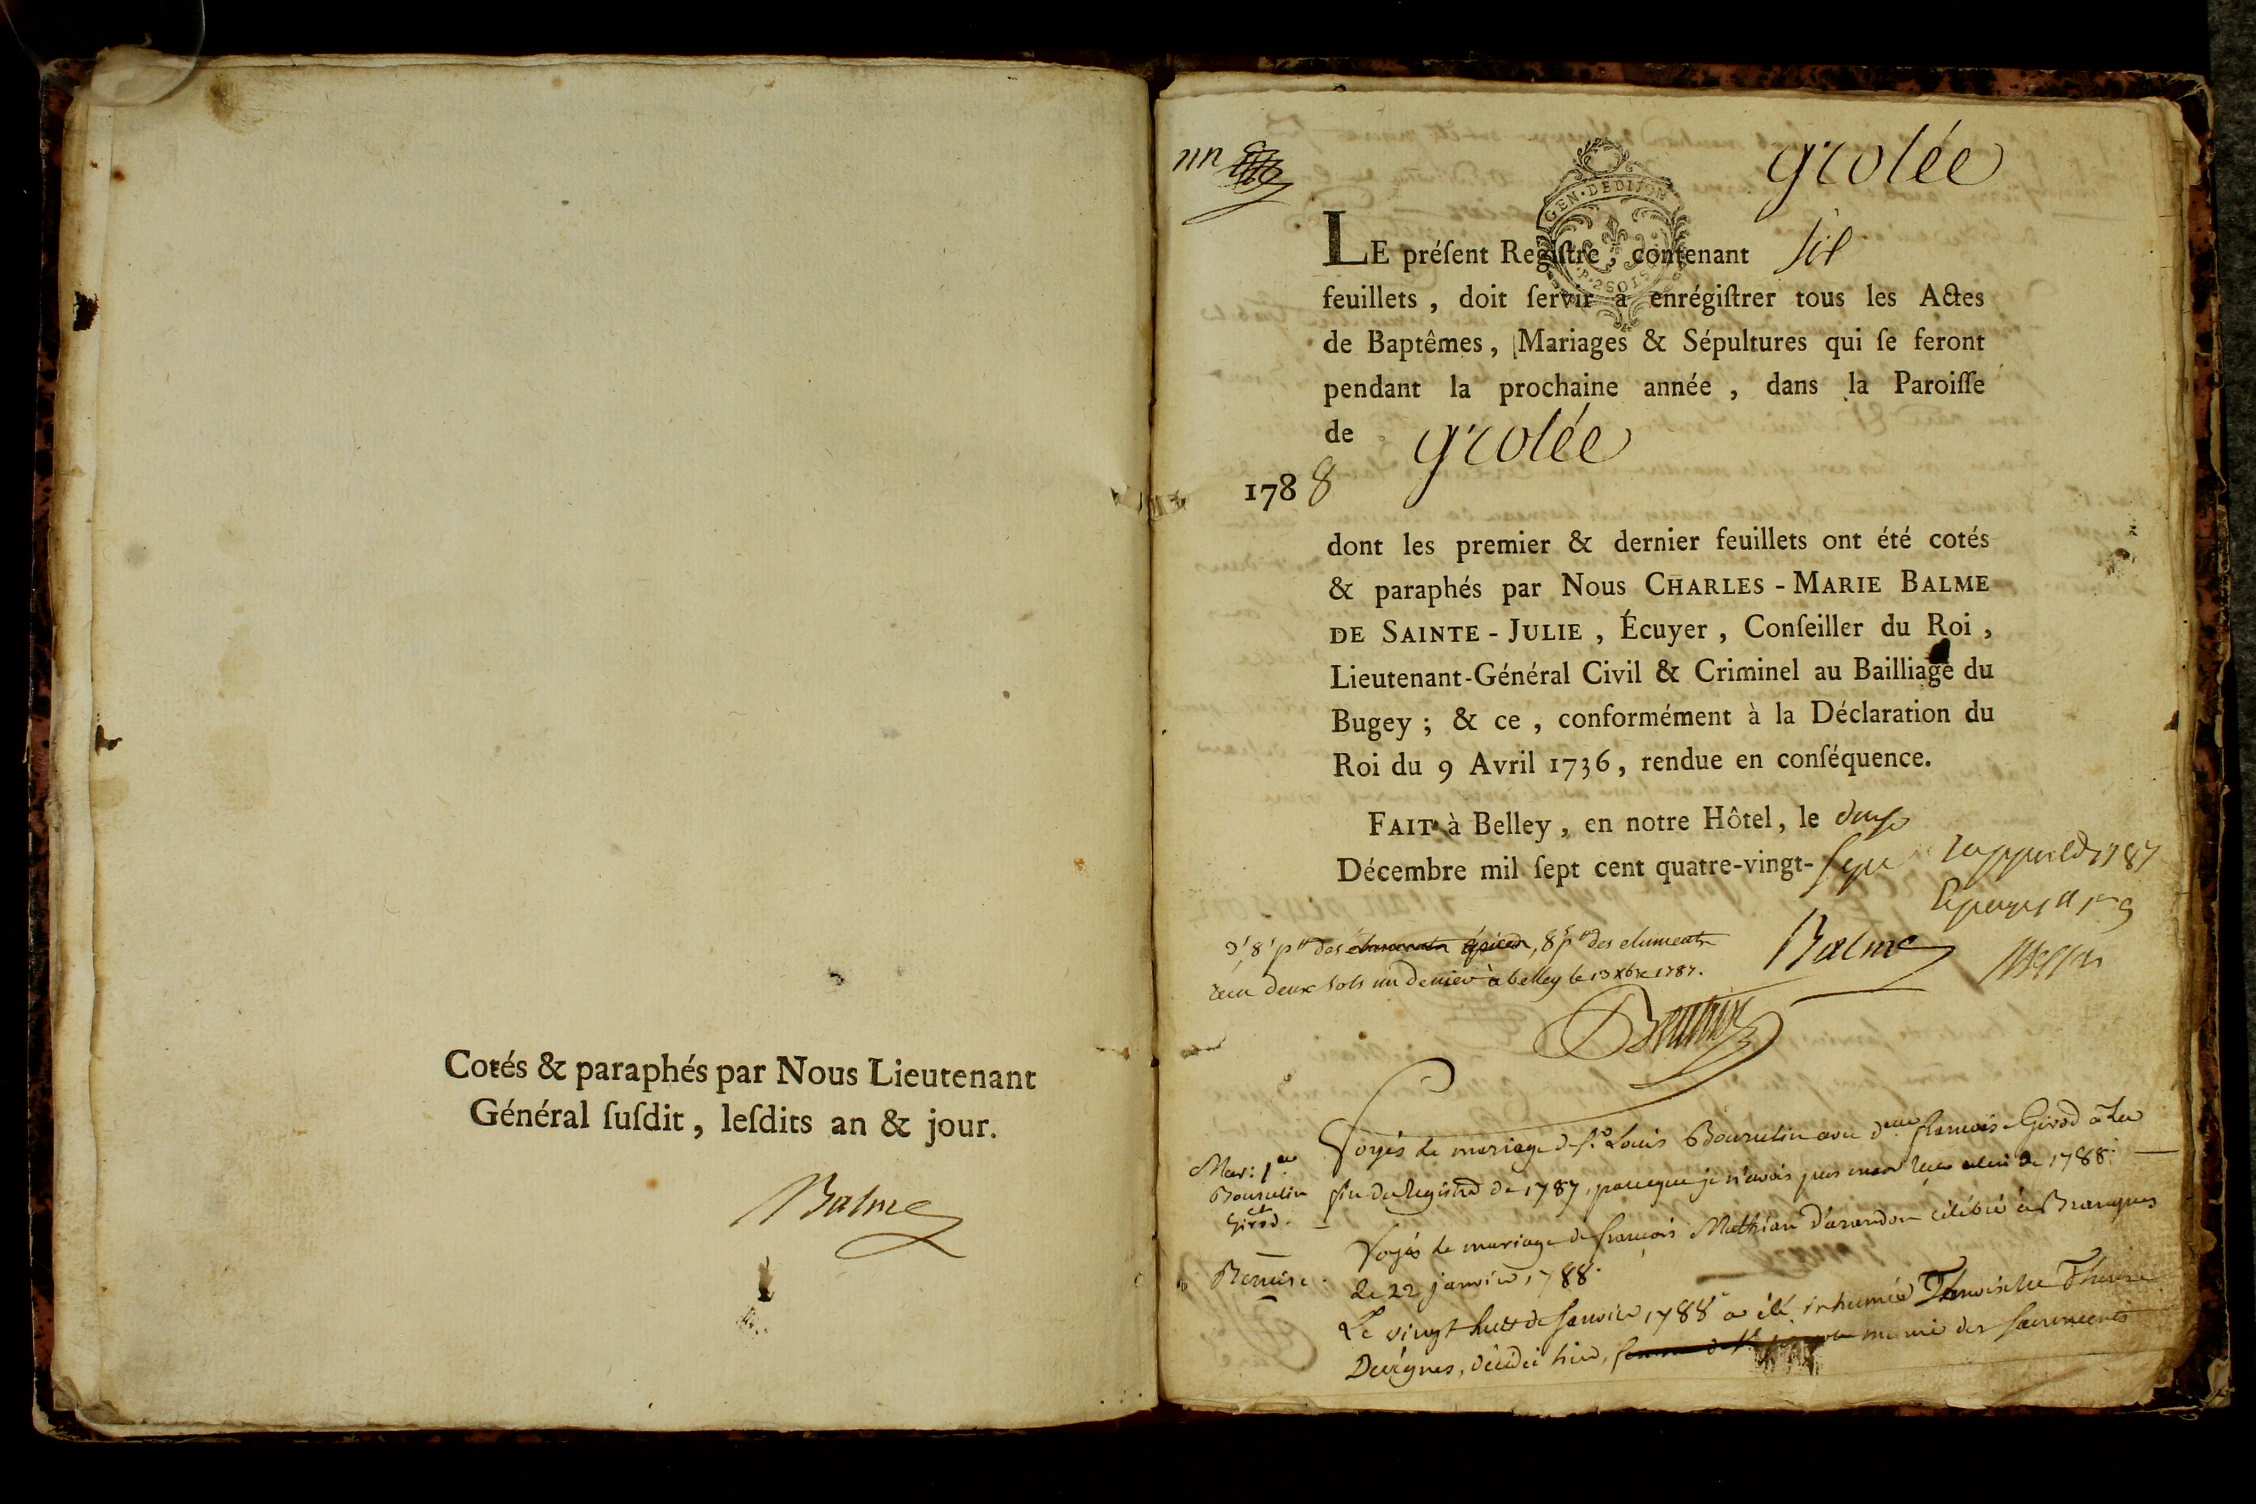 Cotés & paraphés par Nous Lieutenant
Général ſuſdit, leſdits an & jour.
Balme
grolée
GEN·DEDIJON
LE préſent Regiſtre, contenant six
feuillets, doit ſervir à enrégiſtrer tous les Actes
de Baptêmes, Mariages & Sépultures qui ſe feront
pendant la prochaine année, dans la Paroiſſe
de grolée
1788
dont les premier & dernier feuillets ont été cotés
& paraphés par Nous CHARLES-MARIE BALME
DE SAINTE-JULIE, Écuyer, Conſeiller du Roi,
Lieutenant-Général Civil & Criminel au Bailliage du
Bugey; & ce, conformément à la Déclaration du
Roi du 9 Avril 1736, rendue en conſéquence.
FAIT à Belley, en notre Hôtel, le douze
Décembre mil ſept cent quatre-vingt-sept
1787
Balme
des épices, 8 des
recu deux sols un denier à belley le 13 xbre 1787.
Mar: 1er
Bourcelin
et
Girod.
Voyés le mariage de sr Louis Bourcelin avec dlle francoise Girod à la
fin du Registre de 1787, parceque je n'avois pas celui de 1788.
Remise.
Voyés le mariage de françois Mathian d'arandon célébré à Brangues
le 22 janvier 1788.
Le vingt huit de Janvier 1788 a été inhumée
décédée hier, munie des sacrements